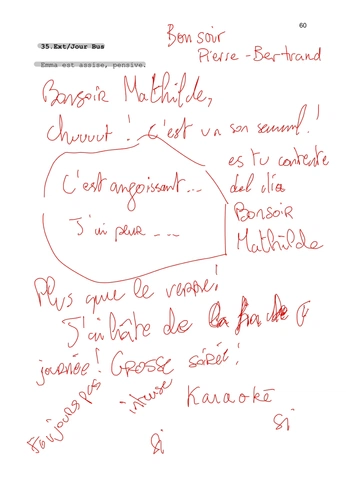 60
35.Ext/Jour Bus
Emma est assise, pensive.
Bonsoir
Pierre-Bertrand
Bonsoir Mathilde,
chuuuut ! C'est un son
es tu contente
C'est angoissant...
J'ai peur ---
Bonsoir
Mathilde
Plus que le verre!
J'ai hâte de la fin de
journée! Grosse soirée!
Toujours pas
intruse
Karaokē
si
si